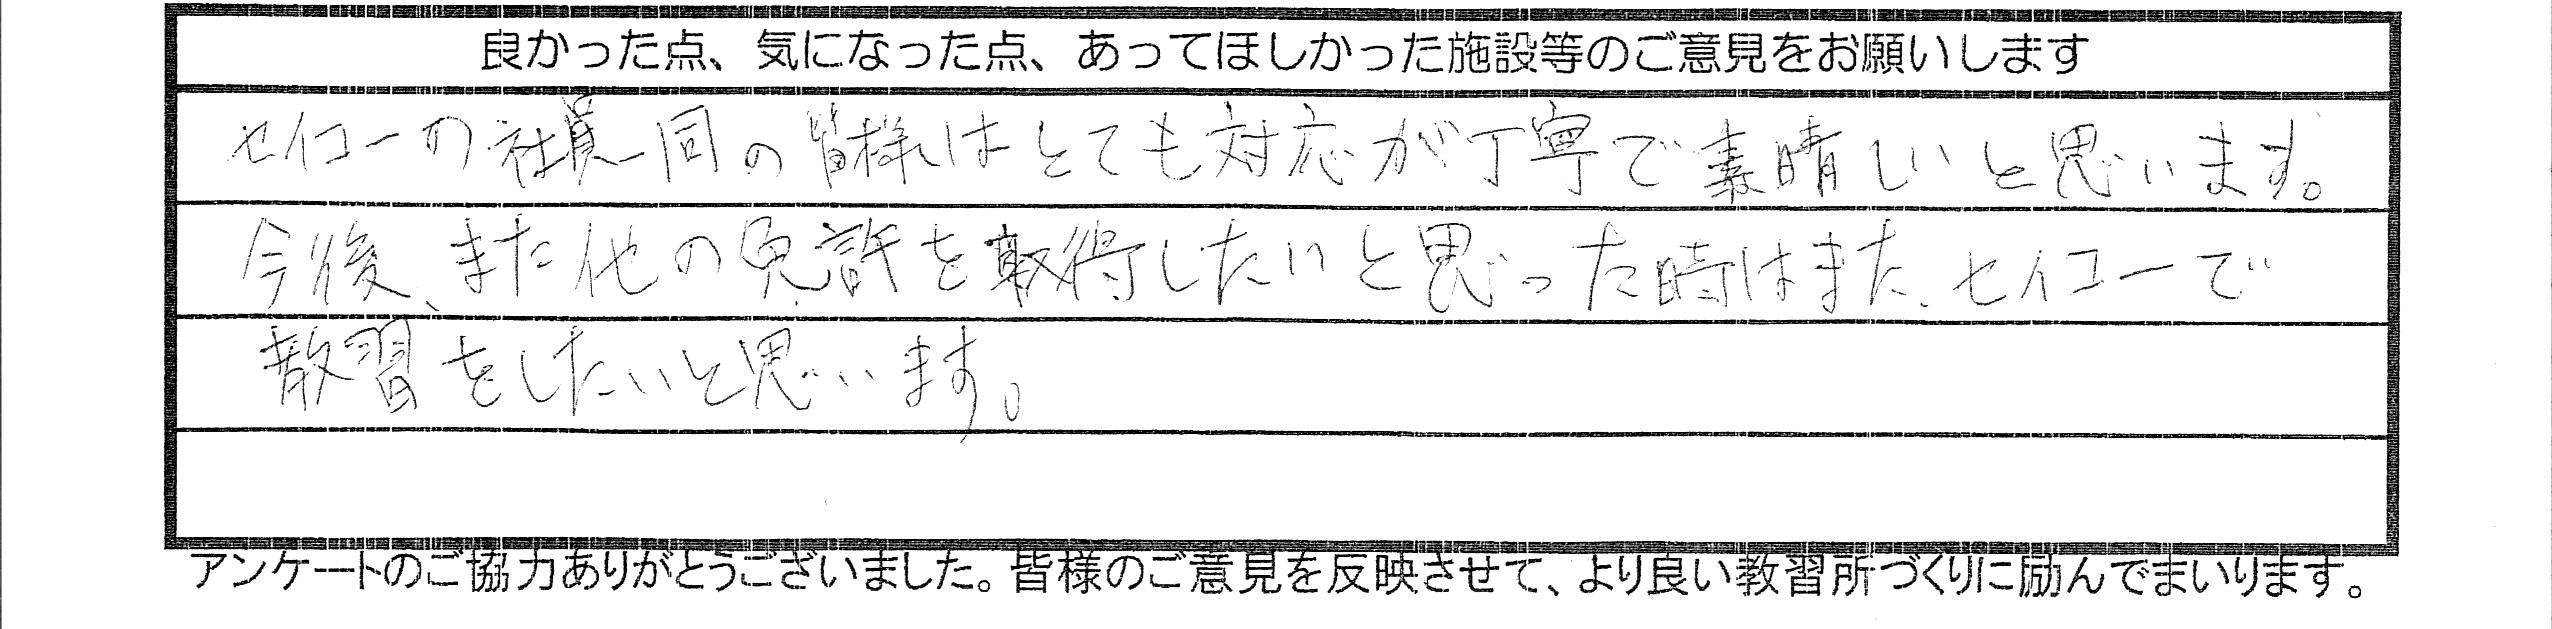 良かった点、気になった点、あってほしかった施設等のご意見をお願いします
セイコーの社員一同の皆様はとても対応が丁寧で素晴しいと思います。
今後、また他の免許を取得したいと思った時はまた、セイコーで
教習をしたいと思います。
アンケートのご協力ありがとうございました。皆様のご意見を反映させて、より良い教習所づくりに励んでまいります。